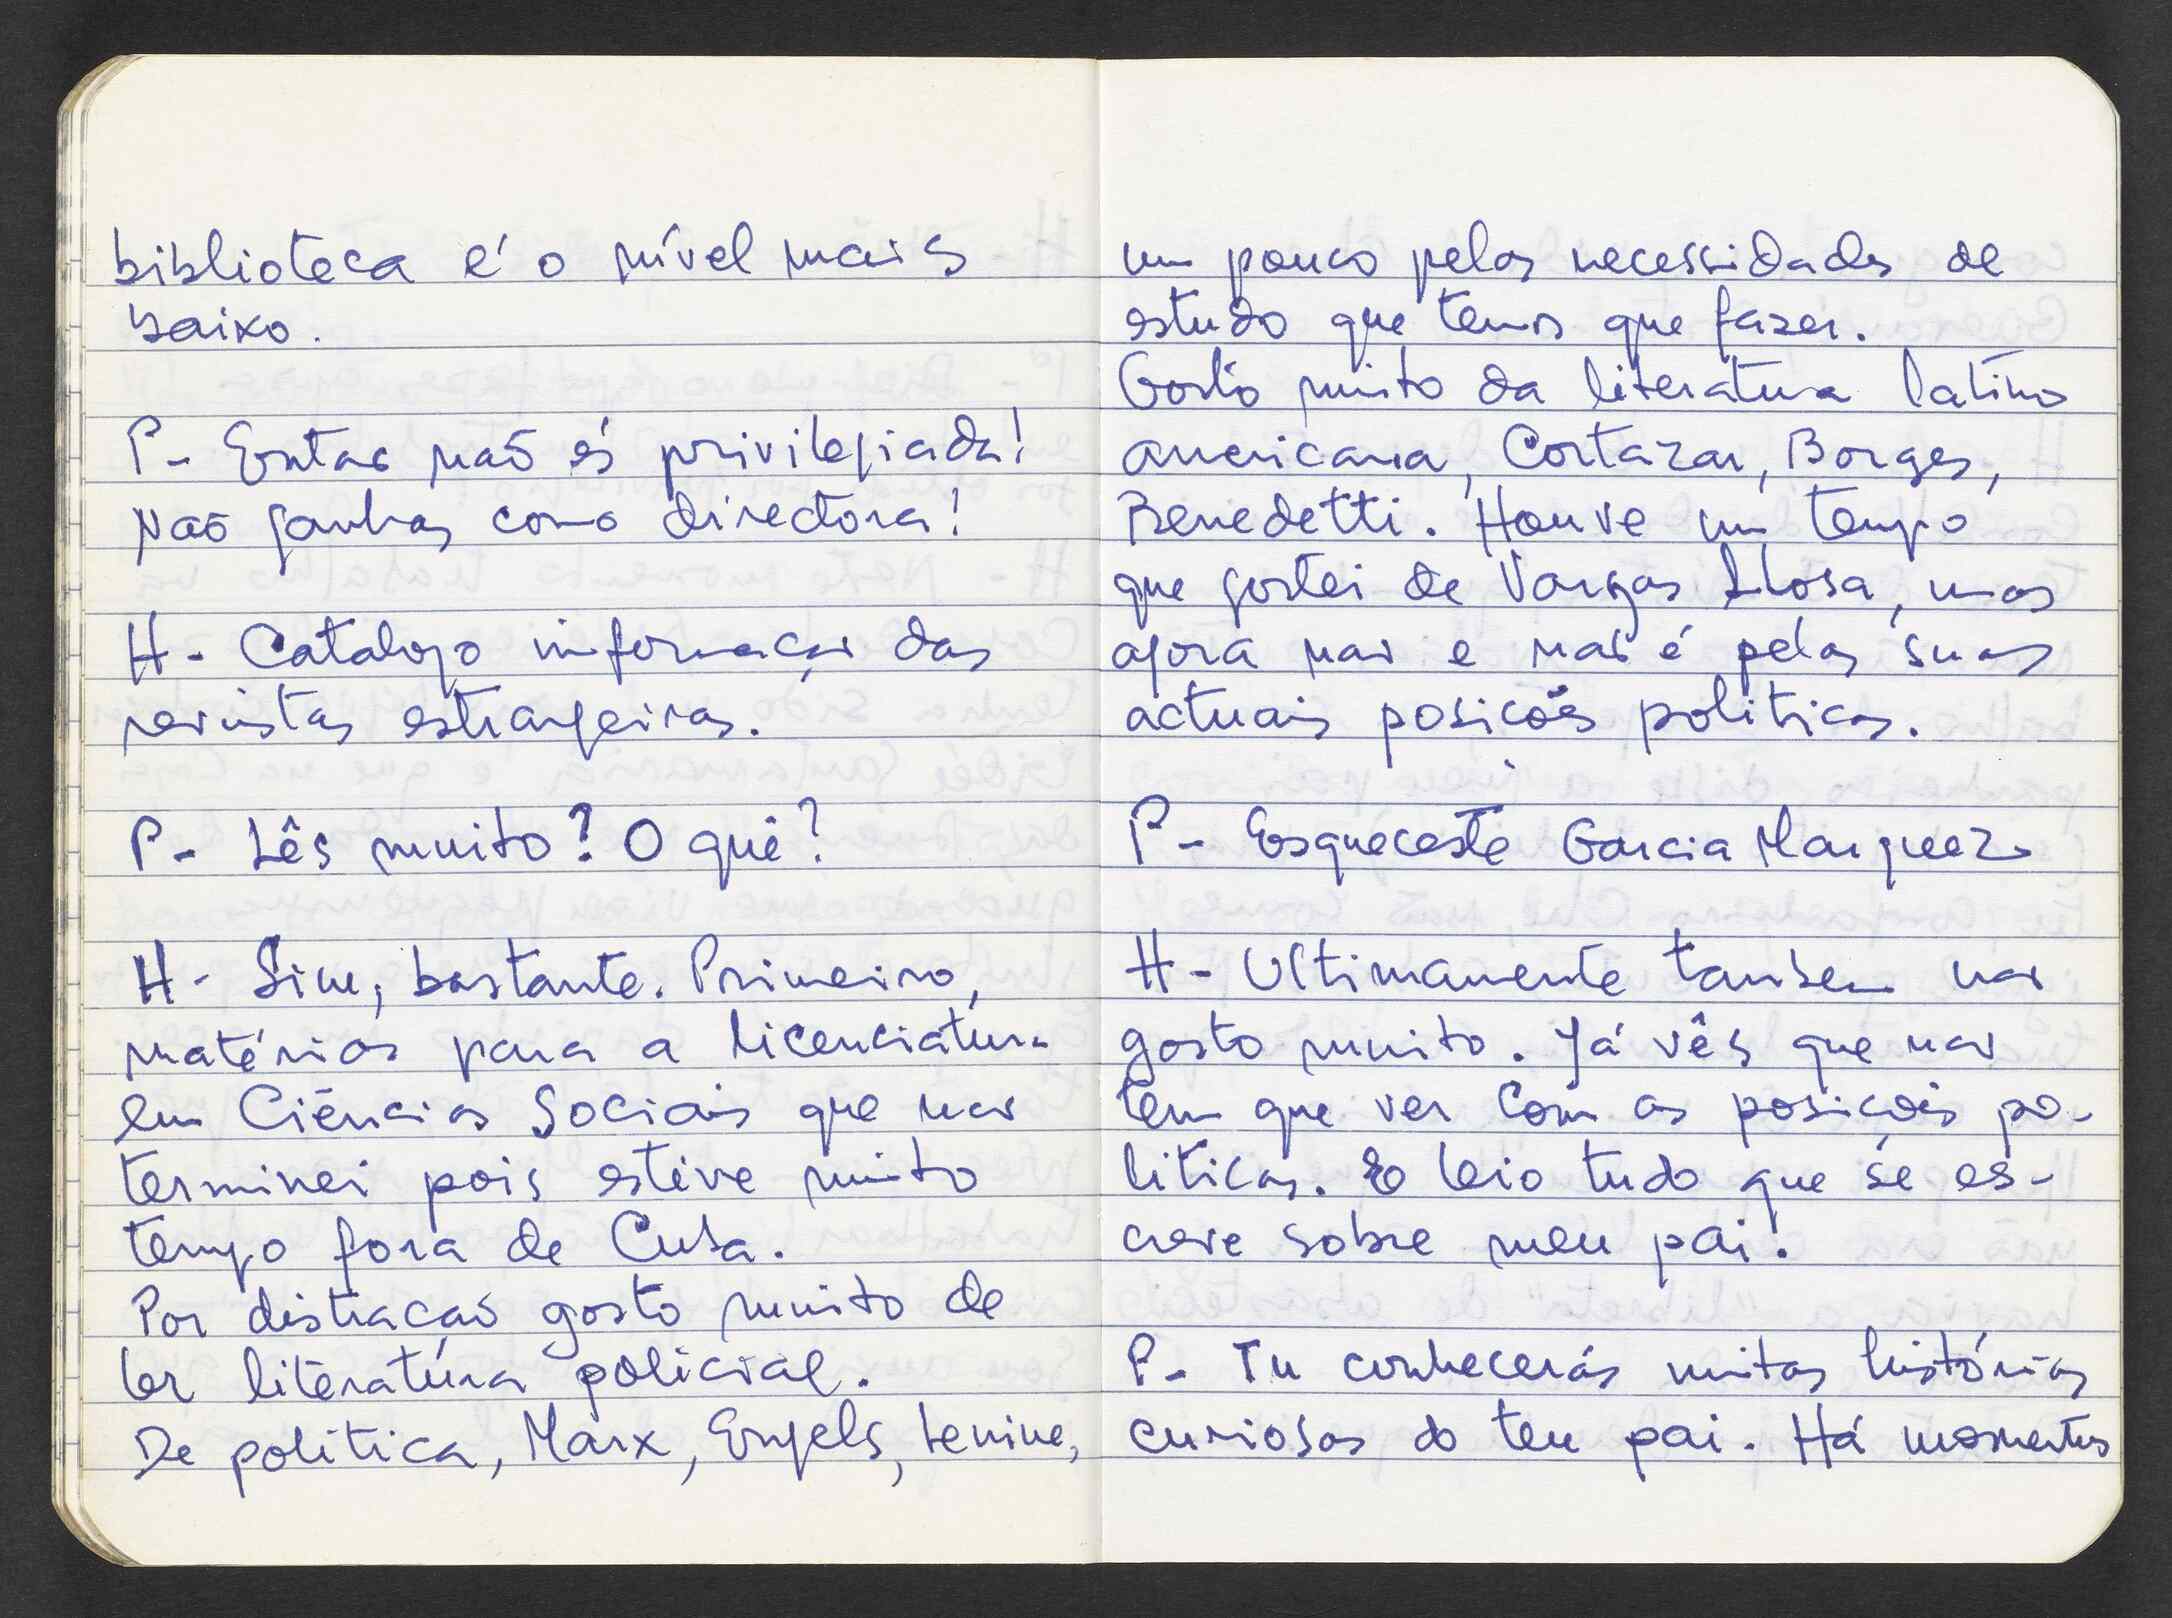 biblioteca é o nível mais
baixo.
P- Entao não és privilegiada!
Não ganhas como directora!
H- Catalogo informaçao das
revistas estrangeiras.
P- Lês muito? O quê?
H- Sim, bastante. Primeiro,
matérias para a licenciatura
em Ciências Sociais que nao
terminei pois estive muito
tempo fora de Cuba.
Por distracção gosto muito de
ler literatura policial.
De politica, Marx, Engels, Lenine,
um pouco pelas necessidades de
estudo que temos que fazer.
Gosto muito da literatura latino
americana, Cortazar, Borges,
Benedetti. Houve um tempo
que gostei de Vargas Llosa, mas
agora nao e não é pelas suas
actuais posições politicas.
P- Esqueceste Garcia Marquez
H- Ultimamente tambem nao
gosto muito. Já vês que nao
tem que ver com as posições po-
liticas. E leio tudo que se es-
creve sobre meu pai!
P- Tu conhecerás muitas histórias
curiosas do teu pai. Há momentos